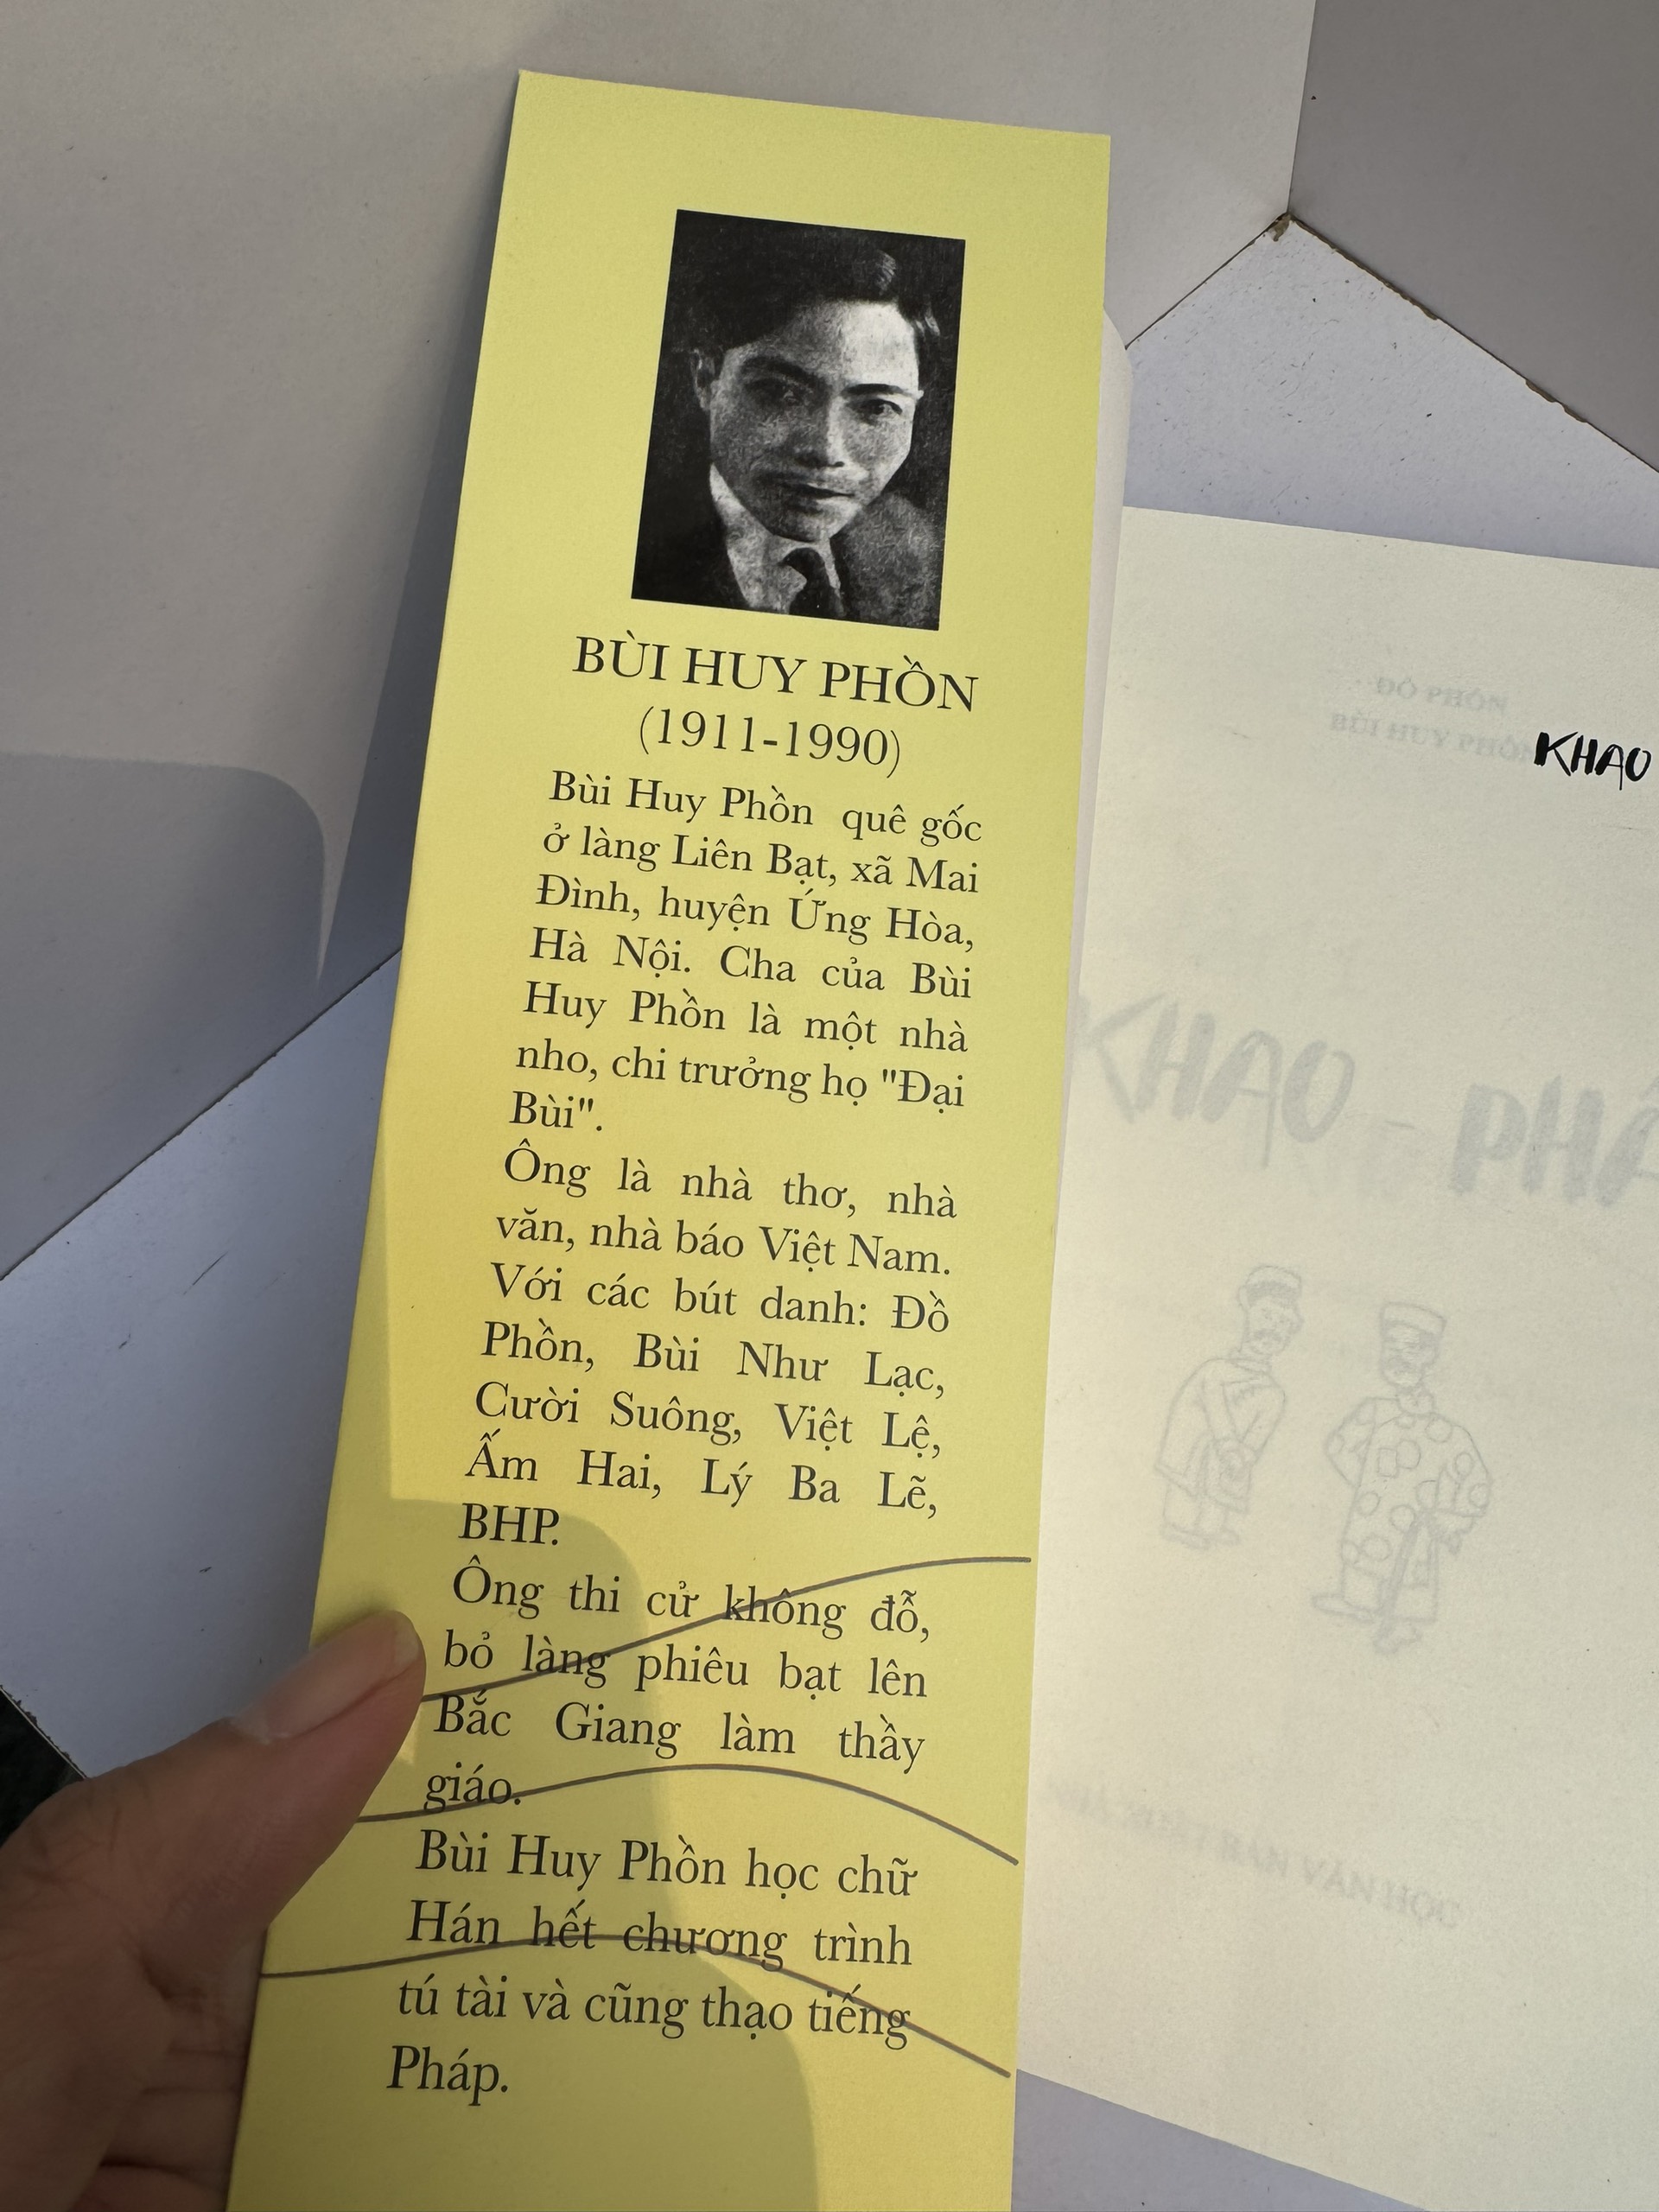 BÙI HUY PHỒN
(1911-1990)
Bùi Huy Phồn quê gốc
ở làng Liên Bạt, xã Mai
Đình, huyện Ứng Hòa,
Hà Nội. Cha của Bùi
Huy Phồn là một nhà
nho, chi trưởng họ "Đại
Bùi".
Ông là nhà thơ, nhà
văn, nhà báo Việt Nam.
Với các bút danh: Đồ
Phồn, Bùi Như Lạc,
Cười Suông, Việt Lệ,
Ấm Hai, Lý Ba Lẽ,
BHP.
Ông thi cử không đỗ,
bỏ làng phiêu bạt lên
Bắc Giang làm thầy
giáo.
Bùi Huy Phồn học chữ
Hán hết chương trình
tú tài và cũng thạo tiếng
Pháp.
ĐỒ PHỒN
BÙI HUY PHỒN
KHAO
KHAO - PHA
NHÀ XUẤT BẢN VĂN HỌC